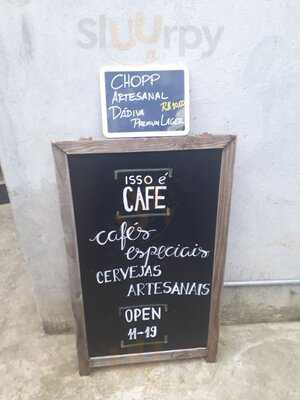 Sluurpy
CHOPP
ARTESANAL
DÁDIVA
PREMIUM LAGER
ISSO é
CAFÉ
cafés
especiais
CERVEJAS
ARTESANAIS
OPEN
11-19